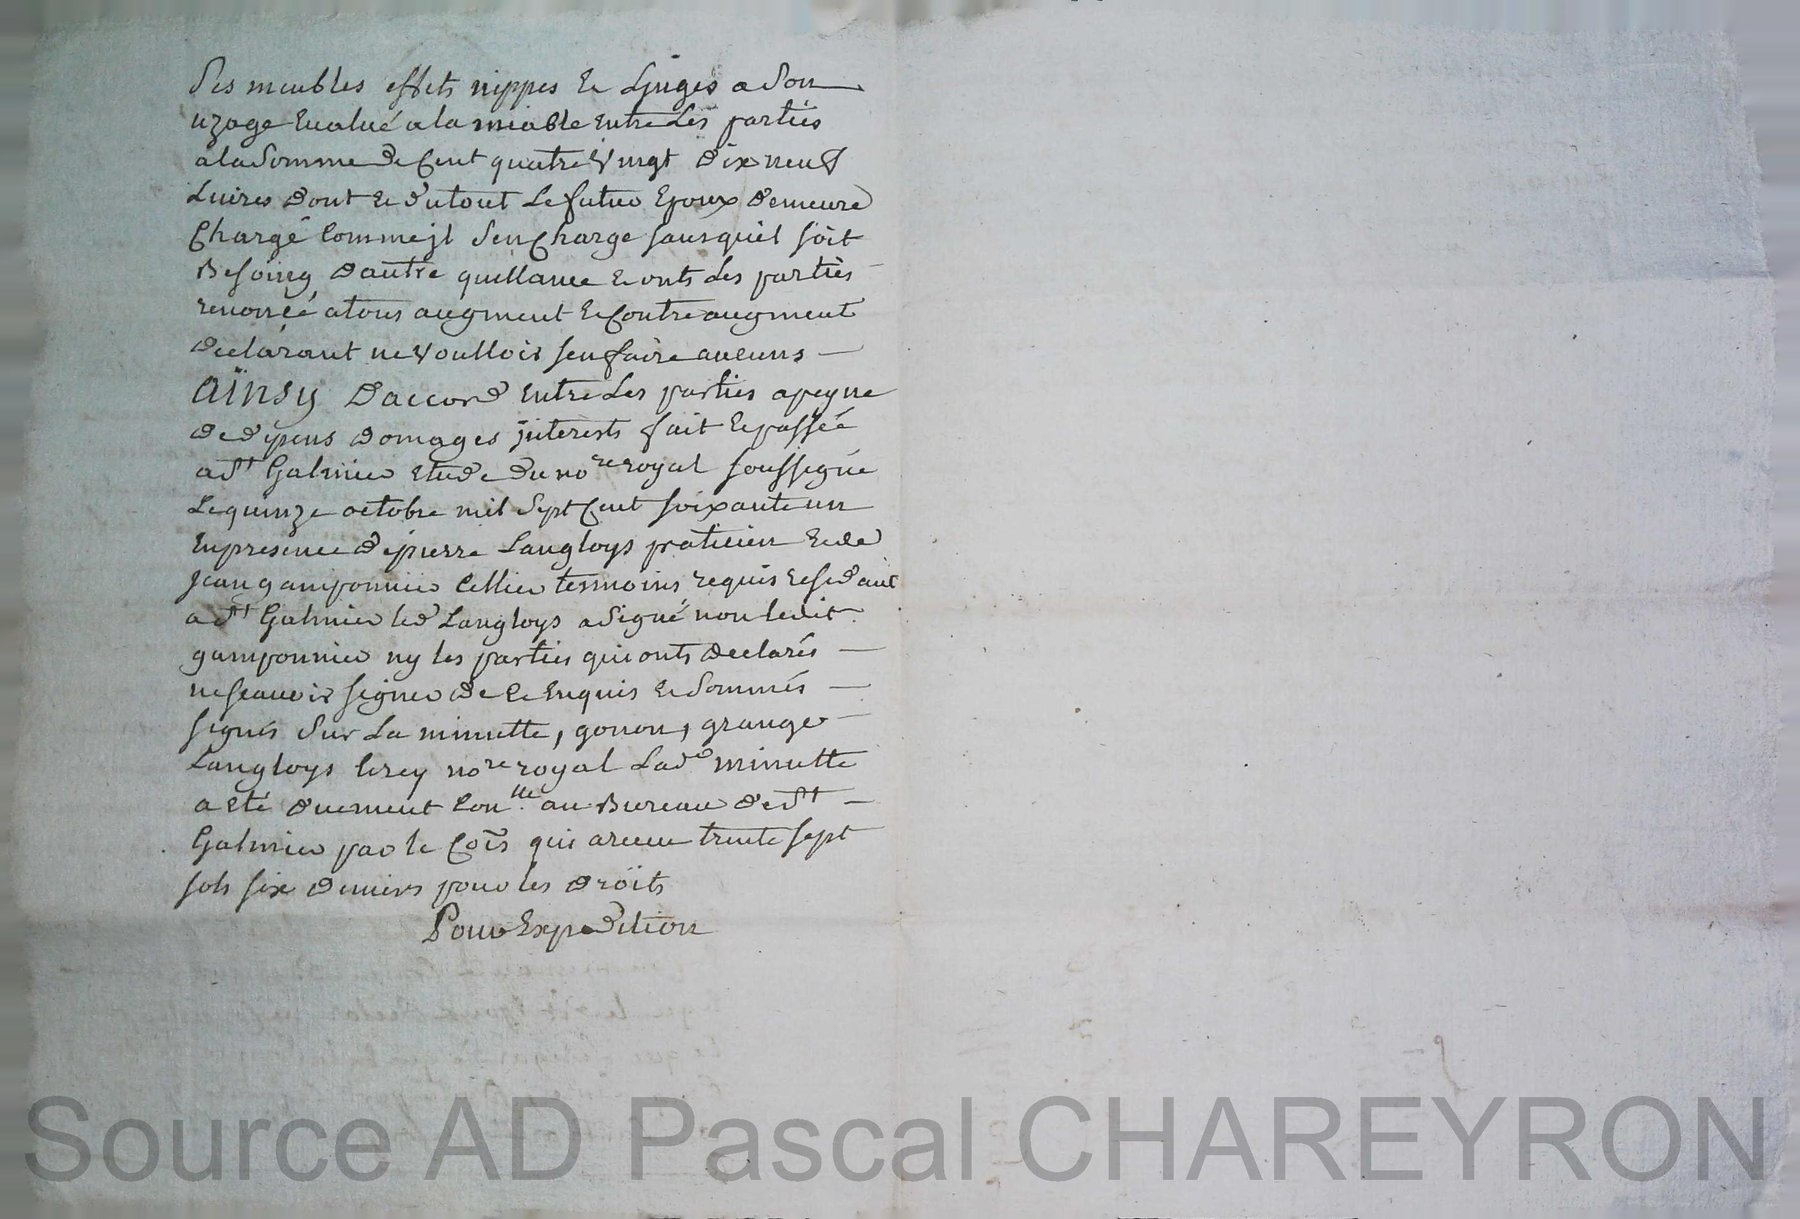 Ses meubles effets nippes Et Linges a Son
uzage Evalué a la miable Entre Les parties
a la Somme de Cent quatre Vingt dix neuf
Livres dont Et du tout Le futur Epoux demeure
Chargé Comme jl Sen Charge sans quiel soit
Besoing d'autre quittance Et onts Les parties
renoncé a tous augment Et Contre augment
declarant ne Voulloir sen faire aucuns
aïnsy D'accord Entre Les parties a peyne
de depens domages jnterests fait Et passée
a St Galmier Etude du nore royal soussigné
Le quinze octobre mil Sept Cent soixante un
En presence de pierre Langloys praticien Et de
Jean gamponnier Cellier tesmoins requis residant
a dt Galmier led Langloys a Signé non ledit
gamponnier ny les parties qui onts declarés
ne scavoir signer de Ce Enquis Et Sommés
signés Sur La minutte, gonon, grange
Langloys Levey nore royal Lade minutte
a Eté duement Conlle au Bureau de St
Galmier par le Cois qui a receu trente sept
sols six deniers pour les droits
Pour Expedition
Source AD Pascal CHAREYRON